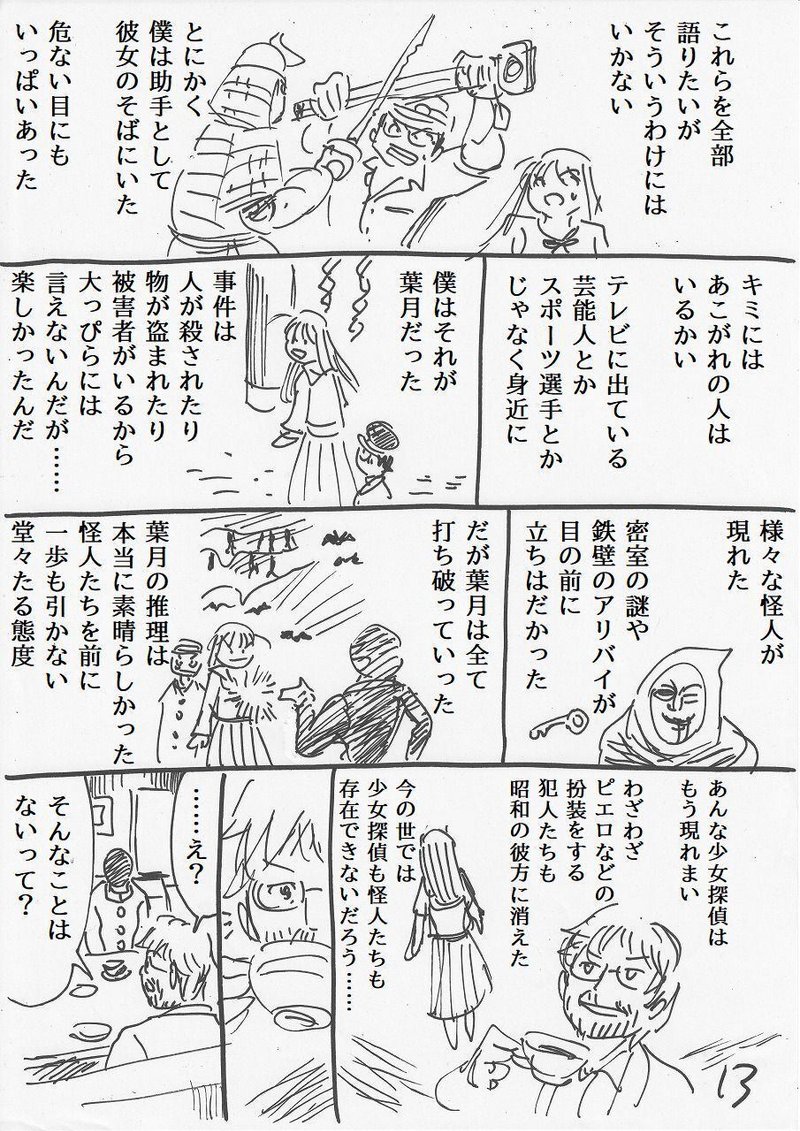 これらを全部
語りたいが
そういうわけには
いかない
とにかく
僕は助手として
彼女のそばにいた
危ない目にも
いっぱいあった
キミには
あこがれの人は
いるかい
テレビに出ている
芸能人とか
スポーツ選手とか
じゃなく身近に
僕はそれが
葉月だった
事件は
人が殺されたり
物が盗まれたり
被害者がいるから
大っぴらには
言えないんだが……
楽しかったんだ
様々な怪人が
現れた
密室の謎や
鉄壁のアリバイが
目の前に
立ちはだかった
だが葉月は全て
打ち破っていった
葉月の推理は
本当に素晴らしかった
怪人たちを前に
一歩も引かない
堂々たる態度
あんな少女探偵は
もう現れまい
わざわざ
ピエロなどの
扮装をする
犯人たちも
昭和の彼方に消えた
今の世では
少女探偵も怪人たちも
存在できないだろう……
……え？
そんなことは
ないって？
13